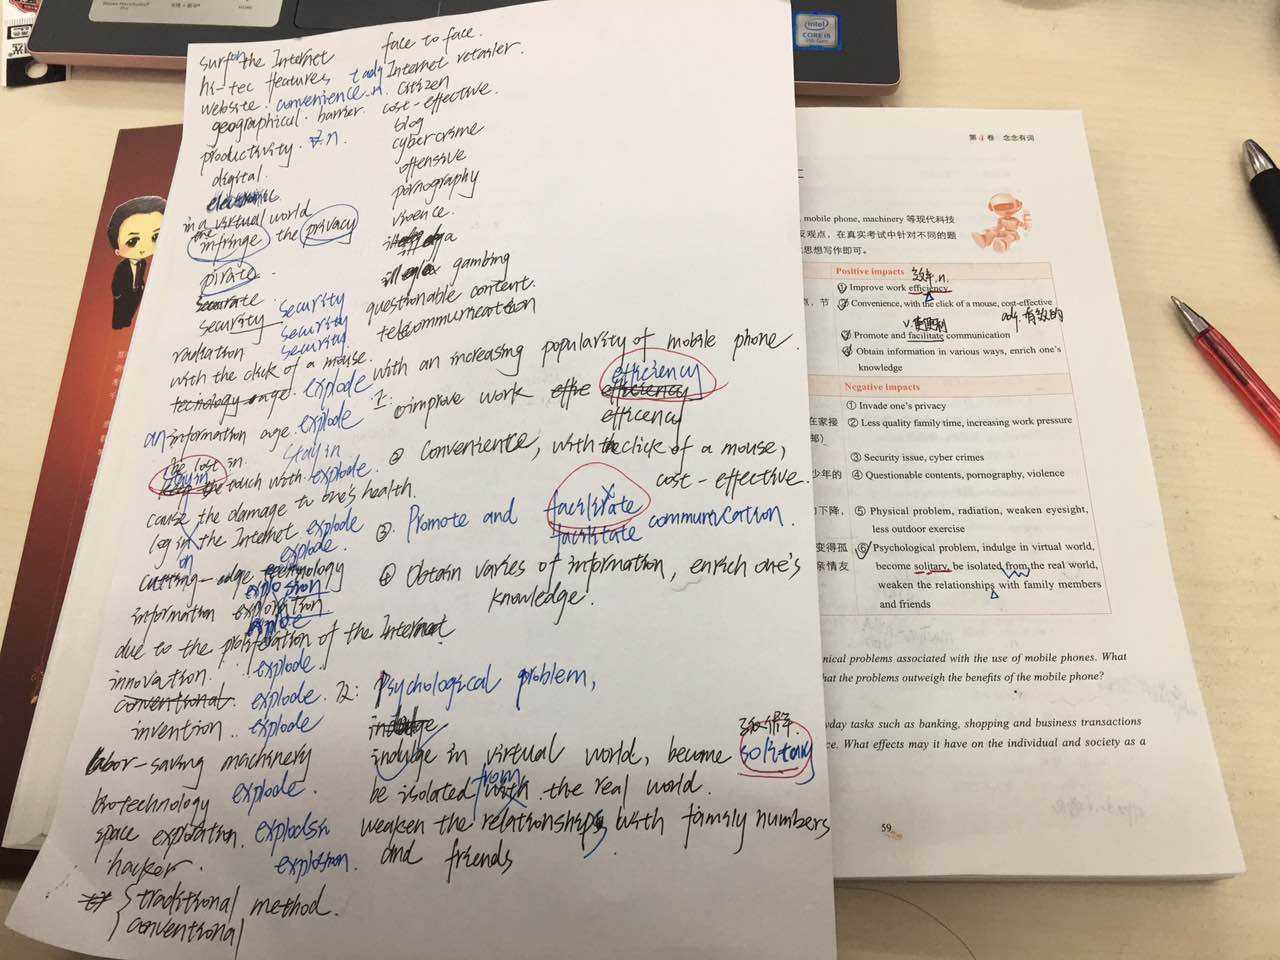 surf on the Internet
face to face.
hi-tec features
t adj Internet retailer.
website. convenience. n. citizen
geographical. barrier.
cost-effective.
blog
productivity. 不.n.
cybercrime
digital.
offensive
pornography
in a virtual world
vioence.
infringe the privacy
pirate.
gambing
security
questionable content.
security
telecommunication
security
radiation
security
with the click of a mouse.
with an increasing popularity of mobile phone.
explode
efficiency
I: ① improve work
efficency
an information age.
explode
② Convenience, with the click of a mouse,
stay in
cost-effective.
stay in
touch with.
explode.
cause the damage to one's health.
③. Promote and facilitate communication.
facilitate
log in the Internet
on
explode
explode.
cutting-edge, technology
④ Obtain varies of information, enrich one's
knowledge.
information
explosion
explode
due to the proliferation of the Internet
innovation.
explode.
conventional
explode.
II: Psychological problem,
invention.
explode
labor-saving machinery
indulge in virtual world, become solitary
biotechnology
explode.
be isolated with the real world.
from
space exploration.
weaken the relationships with family numbers
and friends
hacker.
explosion.
traditional method.
conventional
intel
CORE i5
第4卷 念念有词
, mobile phone, machinery 等现代科技
反观点，在真实考试中针对不同的题
思想写作即可。
Positive impacts
效率.n.
① Improve work efficiency
② Convenience, with the click of a mouse, cost-effective
v.使便利
adj.有效的
③ Promote and facilitate communication
④ Obtain information in various ways, enrich one's
knowledge
Negative impacts
① Invade one's privacy
② Less quality family time, increasing work pressure
③ Security issue, cyber crimes
④ Questionable contents, pornography, violence
⑤ Physical problem, radiation, weaken eyesight,
less outdoor exercise
⑥ Psychological problem, indulge in virtual world,
become solitary, be isolated from the real world,
weaken the relationships with family members
and friends
nical problems associated with the use of mobile phones. What
hat the problems outweigh the benefits of the mobile phone?
yday tasks such as banking, shopping and business transactions
ce. What effects may it have on the individual and society as a
59